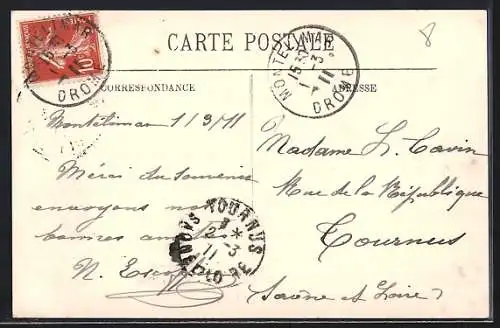 CARTE POSTALE
8
CORRESPONDANCE
ADRESSE
MONTELIMAR
15 30
1 -3
11
DROME
10
DROME
Montélimar 1/3/11
Merci du souvenir
envoyons nos
bonnes amitiés
N.
TOURNUS
2 -3
11
SAONE-ET-LOIRE
Madame L. Cavin
Rue de la République
Tournus
Saône et Loire